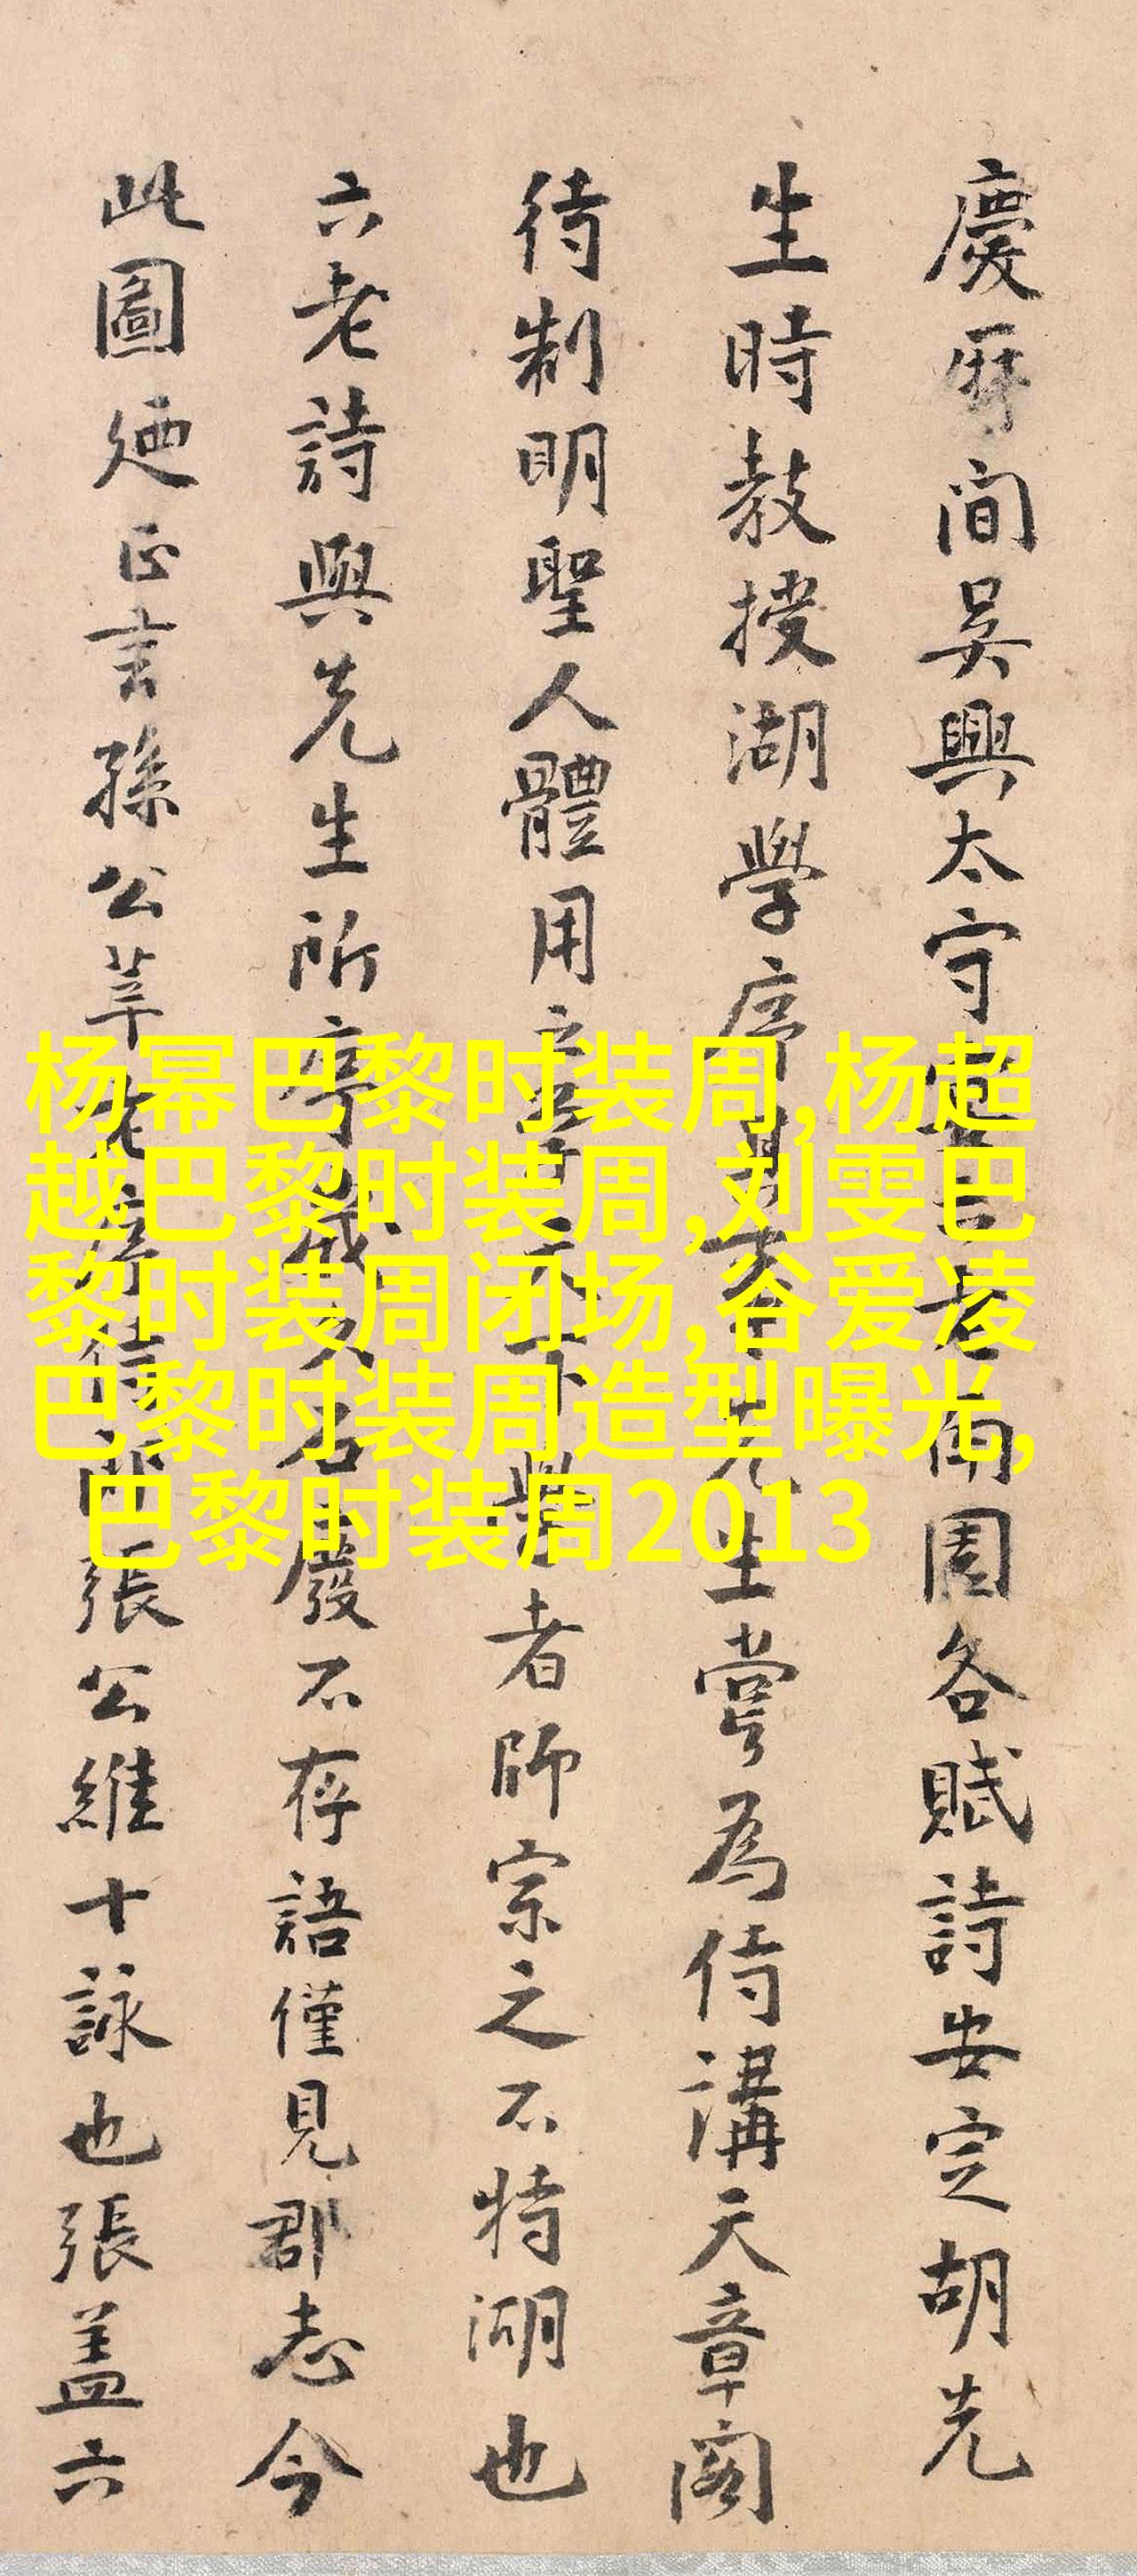 慶曆間吳興太守宴六老南園各賦詩安定胡先
生時教授湖學序其事先生嘗為侍講天章閣
待制明聖人體用之學天下學者師宗之不特湖也
六老詩與先生所序歲久石廢不存語僅見郡志今
此圖迺正言孫公莘老序侍郎張公維十詠也張蓋六
杨幂巴黎时装周,杨超
越巴黎时装周,刘雯巴
黎时装周闭场,谷爱凌
巴黎时装周造型曝光,
巴黎时装周2013